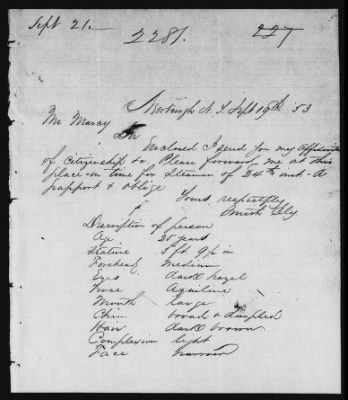 Sept 21.
2281.
227
Newburgh N.Y. Sept 19th 53
Mr Marcy
Sir Enclosed I send you my Affidavit
of Citizenship &c, Please forward me at this
place in time for Steamer of 24th inst. A
passport & oblige
Yours respectfully
Smith Ely
Discription of person
Age 28 years
Stature 5 ft. 9½ in
Forehead Medium
Eyes dark hazel
Nose Aquiline
Mouth large
Chin broad & dimpled
Hair dark brown
Complexion light
Face narrow